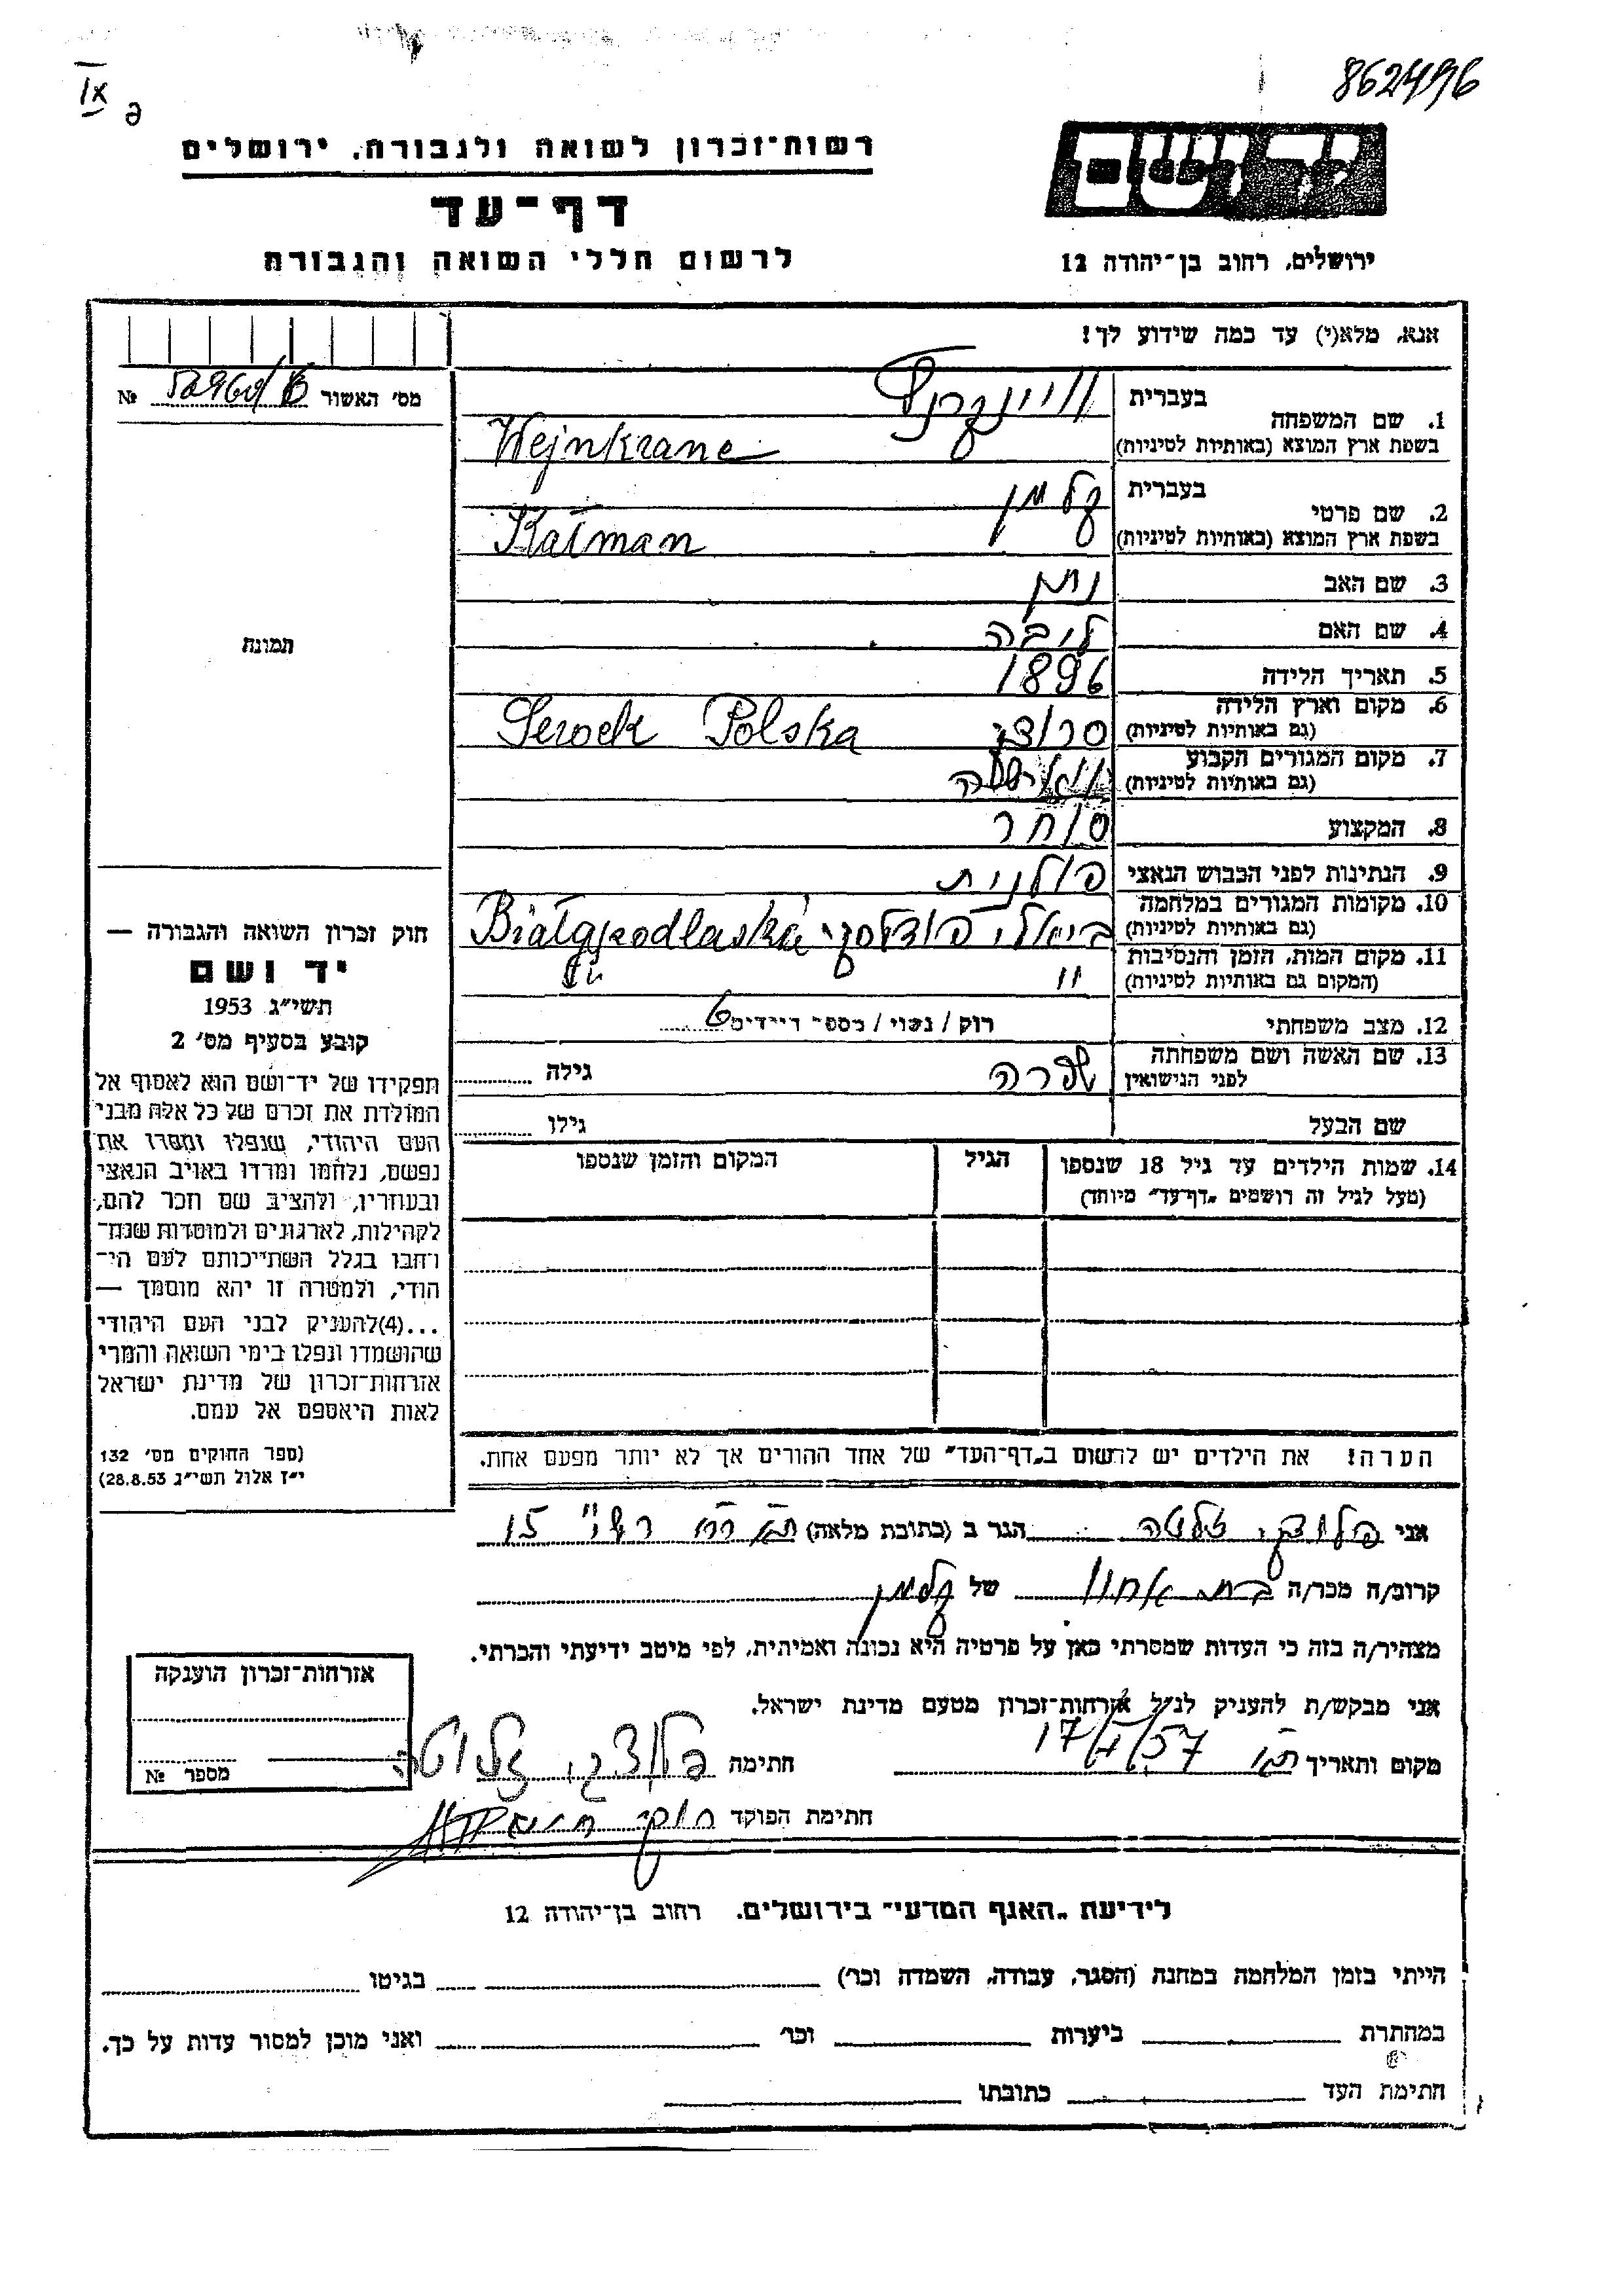 IX
862496
רשות-זכרון לשואה ולגבורה, ירושלים
דף-עד
לרשום חללי השואה והגבורה
יד ושם
ירושלים, רחוב בן-יהודה 12
אנא, מלא(י) עד כמה שידוע לך!
מס' האשור №
1. שם המשפחה
בעברית
בשפת ארץ המוצא (באותיות לטיניות) Wejnkranc
2. שם פרטי
בעברית קלמן
בשפת ארץ המוצא (באותיות לטיניות) Kalman
3. שם האב נתן
4. שם האם ליבה
5. תאריך הלידה 1896
6. מקום וארץ הלידה
(גם באותיות לטיניות) סרוצק Serock Polska
7. מקום המגורים הקבוע
(גם באותיות לטיניות) ווארשה
8. המקצוע סוחר
9. הנתינות לפני הכבוש הנאצי פולנית
10. מקומות המגורים במלחמה
(גם באותיות לטיניות) ביאלי פודלסקי Białapodlaska
11. מקום המות, הזמן והנסיבות
(המקום גם באותיות לטיניות) " "
12. מצב משפחתי רוק / נשוי / מספר הילדים 6
13. שם האשה ושם משפחתה
לפני הנישואין שפרה גילה
שם הבעל גילו
14. שמות הילדים עד גיל 18 שנספו הגיל המקום והזמן שנספו
(מעל לגיל זה רושמים "דף-עד" מיוחד)
הערה! את הילדים יש לרשום ב"דף-העד" של אחד ההורים אך לא יותר מפעם אחת.
תמונה
חוק זכרון השואה והגבורה —
יד ושם
תשי"ג 1953
קובע בסעיף מס' 2
תפקידו של יד-ושם הוא לאסוף אל
המולדת את זכרם של כל אלה מבני
העם היהודי, שנפלו ומסרו את
נפשם, נלחמו ומרדו באויב הנאצי
ובעוזריו, ולהציב שם וזכר להם,
לקהילות, לארגונים ולמוסדות שנח-
רבו בגלל השתייכותם לעם הי-
הודי, ולמטרה זו יהא מוסמך —
...(4)להעניק לבני העם היהודי
שהושמדו ונפלו בימי השואה והמרי
אזרחות-זכרון של מדינת ישראל
לאות היאספם אל עמם.
(ספר החוקים מס' 132
י"ז אלול תשי"ג 28.8.53)
אני הגר ב (כתובת מלאה) רש"י 15
קרוב/ה מכר/ה בת אחיו של קלמן
מצהיר/ה בזה כי העדות שמסרתי כאן על פרטיה היא נכונה ואמיתית, לפי מיטב ידיעתי והכרתי.
אני מבקש/ת להעניק לנ"ל אזרחות-זכרון מטעם מדינת ישראל.
מקום ותאריך ת"א 17/ /57 חתימה
חתימת הפוקד
אזרחות-זכרון הוענקה
מספר №
לידיעת "האגף המדעי" בירושלים, רחוב בן-יהודה 12
הייתי בזמן המלחמה במחנה (הסגר, עבודה, השמדה וכו') בגיטו
במחתרת ביערות וכו' ואני מוכן למסור עדות על כך.
חתימת העד כתובתו